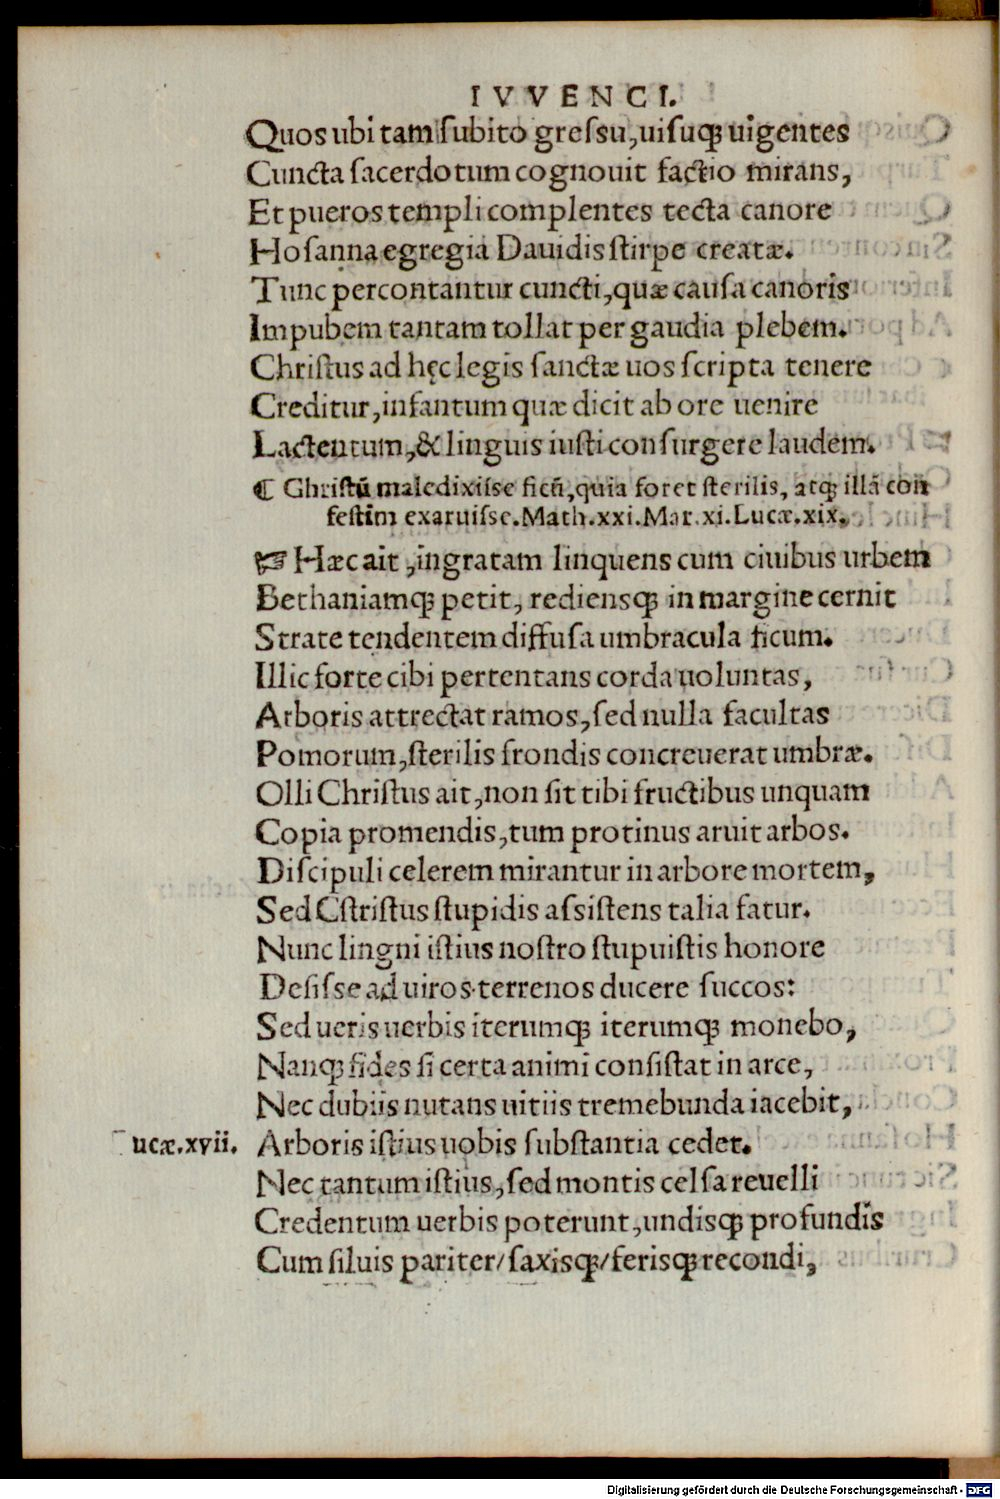 IVVENCI.
Quos ubi tam subito gressu, uisuqꝫ uigentes
Cuncta sacerdotum cognouit factio mirans,
Et pueros templi complentes tecta canore
Hosanna egregia Dauidis stirpe creatæ.
Tunc percontantur cuncti, quæ causa canoris
Impubem tantam tollat per gaudia plebem.
Christus ad hęc legis sanctæ uos scripta tenere
Creditur, infantum quæ dicit ab ore uenire
Lactentum, & linguis iusti consurgere laudem.
¶ Ghristū maledixisse ficū, quia foret sterilis, atqꝫ illā con
festim exaruisse. Math. xxi. Mar. xi. Lucæ. xix.
☞ Hæc ait, ingratam linquens cum ciuibus urbem
Bethaniamqꝫ petit, rediensqꝫ in margine cernit
Strate tendentem diffusa umbracula ficum.
Illic forte cibi pertentans corda uoluntas,
Arboris attrectat ramos, sed nulla facultas
Pomorum, sterilis frondis concreuerat umbræ.
Olli Christus ait, non sit tibi fructibus unquam
Copia promendis, tum protinus aruit arbos.
Discipuli celerem mirantur in arbore mortem,
Sed Cstristus stupidis assistens talia fatur.
Nunc lingni istius nostro stupuistis honore
Desisse ad uiros terrenos ducere succos:
Sed ueris uerbis iterumqꝫ iterumqꝫ monebo,
Nanqꝫ fides si certa animi consistat in arce,
Nec dubiis nutans uitiis tremebunda iacebit,
ucæ. xvii. Arboris istius uobis substantia cedet.
Nec tantum istius, sed montis celsa reuelli
Credentum uerbis poterunt, undisqꝫ profundis
Cum siluis pariter/ saxisqꝫ/ ferisqꝫ recondi,
Digitalisierung gefördert durch die Deutsche Forschungsgemeinschaft - DFG